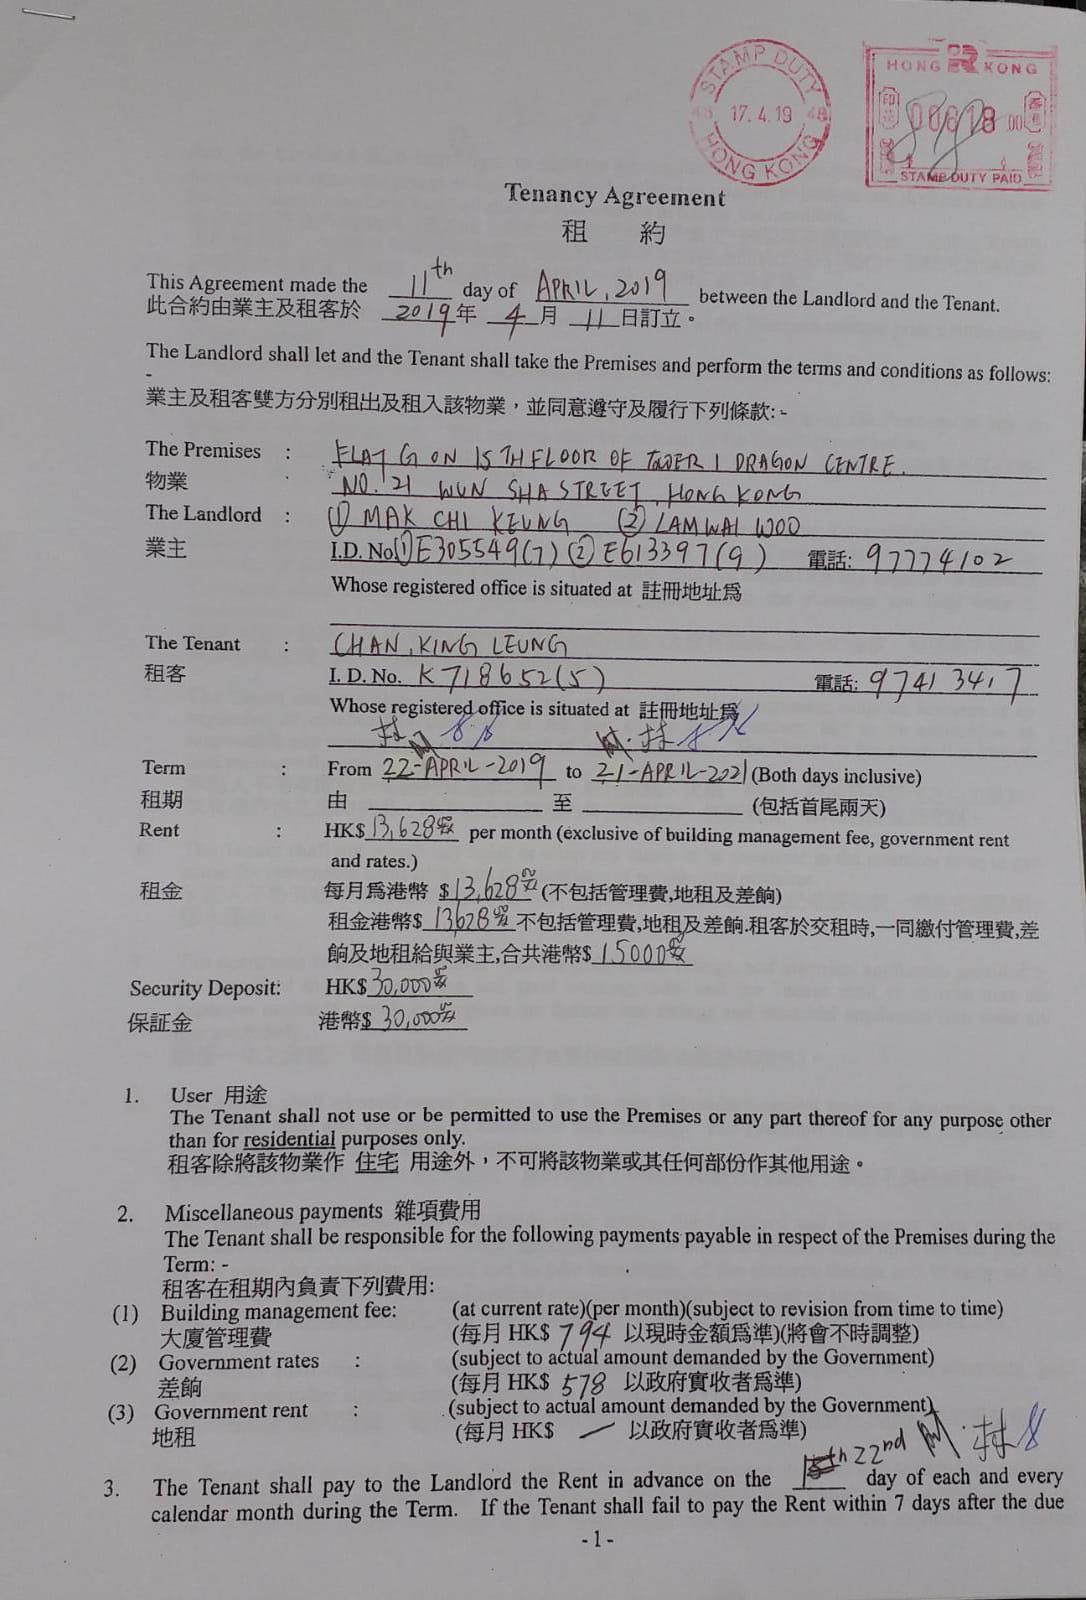 STAMP DUTY
48 17.4.19 48
HONG KONG
HONG R KONG
印花
00618 00
STAMP DUTY PAID
Tenancy Agreement
租 約
This Agreement made the 11th day of APRIL, 2019 between the Landlord and the Tenant.
此合約由業主及租客於 2019年 4月 11日訂立。
The Landlord shall let and the Tenant shall take the Premises and perform the terms and conditions as follows:
-
業主及租客雙方分別租出及租入該物業，並同意遵守及履行下列條款:-
The Premises : FLAT G ON 15TH FLOOR OF TOWER 1 DRAGON CENTRE.
物業 NO. 21 WUN SHA STREET, HONG KONG
The Landlord : (1) MAK CHI KEUNG (2) LAM WAI WOO
業主 I.D. No. (1) E305549(7) (2) E613397(9) 電話: 97774102
Whose registered office is situated at 註冊地址爲
The Tenant : CHAN, KING LEUNG
租客 I. D. No. K718652(5) 電話: 97413417
Whose registered office is situated at 註冊地址爲
林 林
Term : From 22-APRIL-2019 to 21-APRIL-2021 (Both days inclusive)
租期 由 至 (包括首尾兩天)
Rent : HK$ 13,628 per month (exclusive of building management fee, government rent
and rates.)
租金 每月爲港幣 $ 13,628 (不包括管理費,地租及差餉)
租金港幣$ 13628 不包括管理費,地租及差餉.租客於交租時,一同繳付管理費,差
餉及地租給與業主,合共港幣$ 15000
Security Deposit: HK$ 30,000
保証金 港幣$ 30,000
1. User 用途
The Tenant shall not use or be permitted to use the Premises or any part thereof for any purpose other
than for residential purposes only.
租客除將該物業作 住宅 用途外，不可將該物業或其任何部份作其他用途。
2. Miscellaneous payments 雜項費用
The Tenant shall be responsible for the following payments payable in respect of the Premises during the
Term: -
租客在租期內負責下列費用:
(1) Building management fee: (at current rate)(per month)(subject to revision from time to time)
大廈管理費 (每月 HK$ 794 以現時金額爲準)(將會不時調整)
(2) Government rates : (subject to actual amount demanded by the Government)
差餉 (每月 HK$ 578 以政府實收者爲準)
(3) Government rent : (subject to actual amount demanded by the Government)
地租 (每月 HK$ — 以政府實收者爲準)
林
3. The Tenant shall pay to the Landlord the Rent in advance on the 15th 22nd day of each and every
calendar month during the Term. If the Tenant shall fail to pay the Rent within 7 days after the due
- 1 -